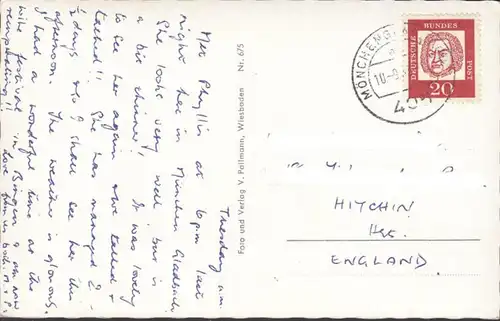 Thursday a.m.
Met Phyllis at 6pm last
night here in München Gladbach.
She looks very well but is
a bit thinner. It was lovely
to see her again & we talked &
talked!! She has managed 2
days so I shall see her this
afternoon. The weather is glorious.
I had a wonderful time at the
wine festival in Bingen & am now
recuperating!! Love
Foto und Verlag V. Pollmann, Wiesbaden Nr. 675
MÖNCHENGL
DEUTSCHE
BUNDES
POST
20
HITCHIN
ENGLAND